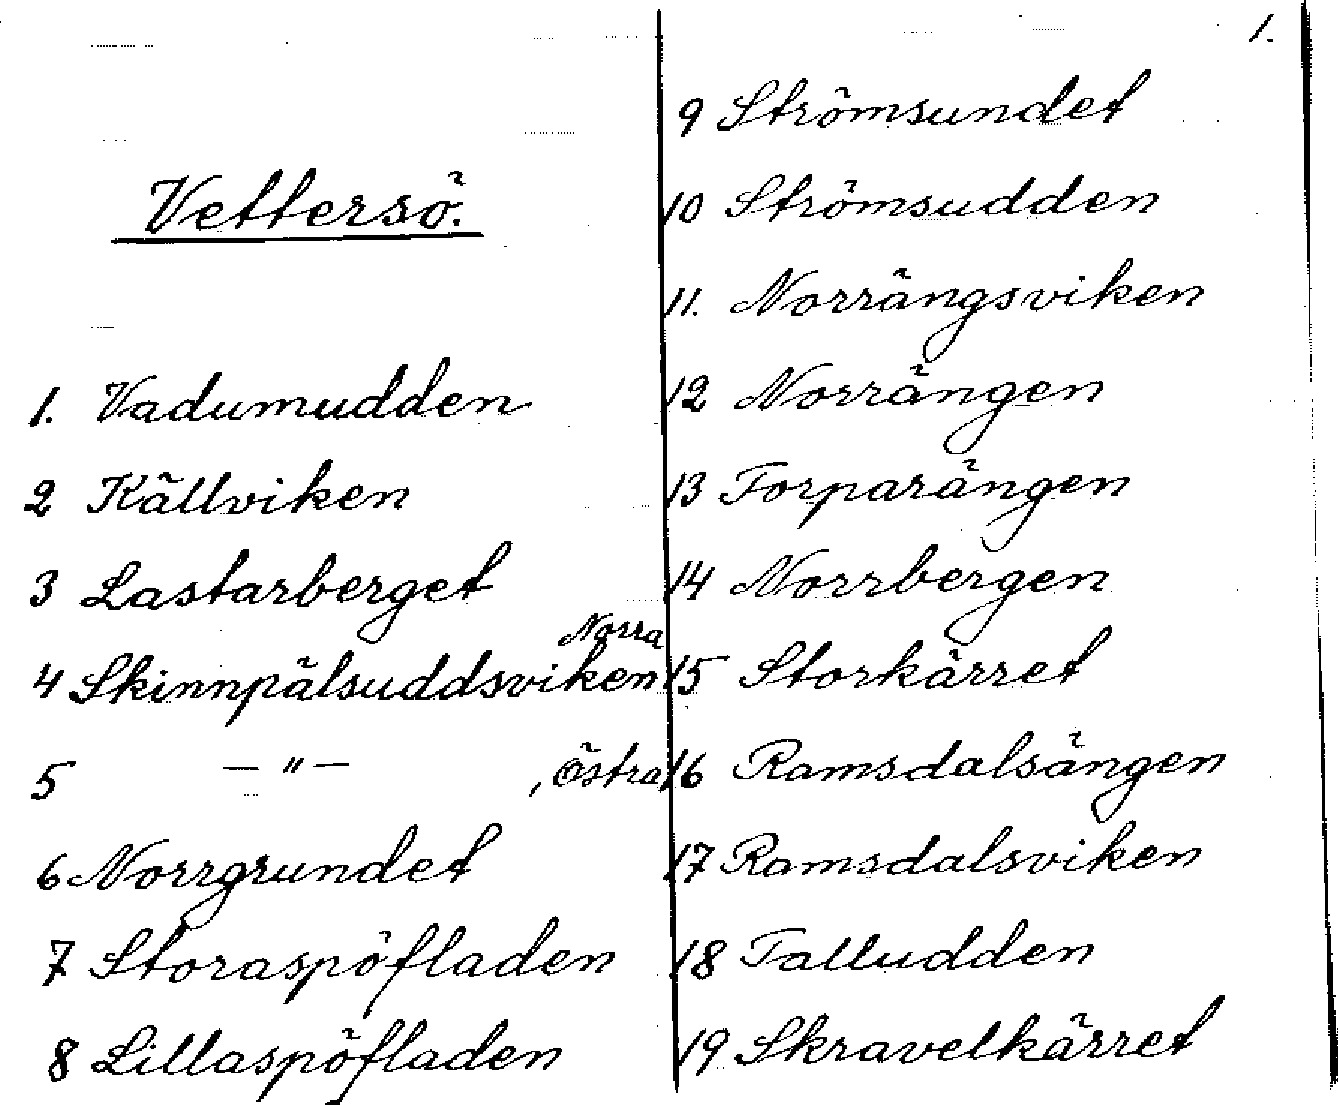 1.
Vettersö.
1. Vadumudden
2 Källviken
3 Lastarberget
4 Skinnpälsuddsviken Norra
5 — " — , Östra
6 Norrgrundet
7 Storaspöfladen
8 Lillaspöfladen
9 Strömsundet
10 Strömsudden
11. Norrängsviken
12 Norrängen
13 Torparängen
14 Norrbergen
15 Storkärret
16 Ramsdalsängen
17 Ramsdalsviken
18 Talludden
19 Skravelkärret